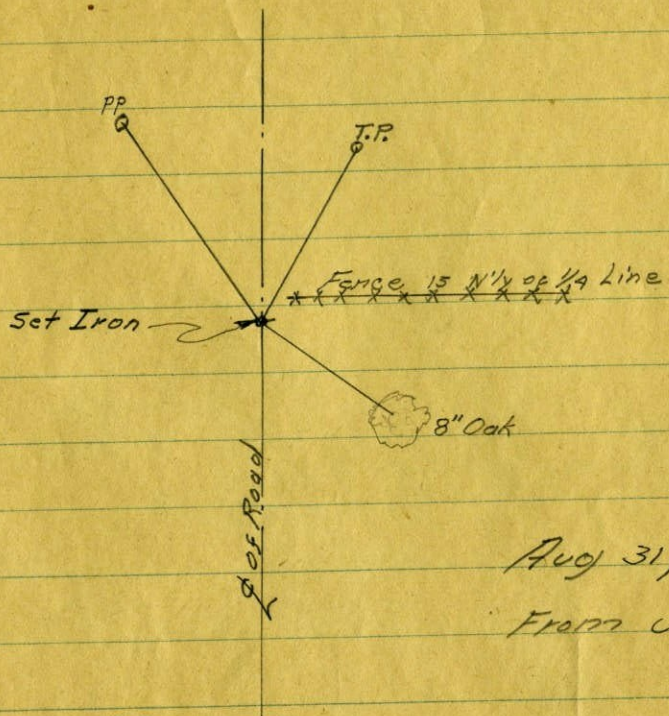 PP
T.P.
Fence is N'ly of 1/4 Line
Set Iron
8" Oak
℄ of Road
Aug 31,
From